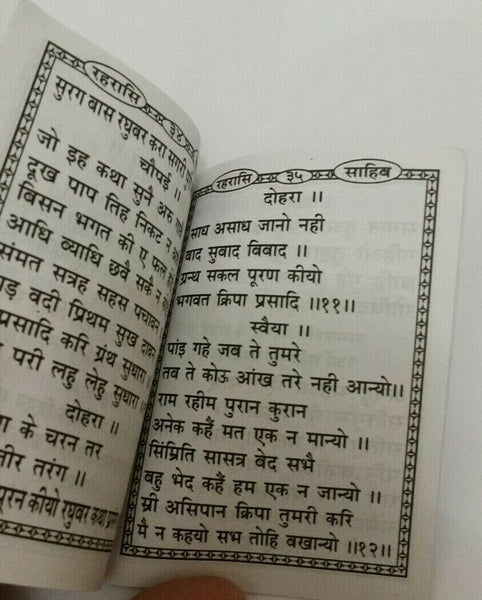 रहरासि ३४
सुरग बास रघुबर करा सगरी
चौपई ॥
जो इह कथा सुनै अरु
दूख पाप तिह निकट न
बिसन भगत की ए फल
आधि ब्याधि छवै सकै न
संमत सत्रह सहस पचावन
वदी प्रिथम सुख दावन
प्रसादि करि ग्रंथ सुधारा
परी लहु लेहु सुधारा
दोहरा ॥
के चरन तर
तीर तरंग ॥
पूरन कीयो रघुबर कथा
रहरासि ३५ साहिब
दोहरा ॥
साध असाध जानो नही
बाद सुबाद बिबाद ॥
ग्रन्थ सकल पूरण कीयो
भगवत क्रिपा प्रसादि ॥११॥
स्वैया ॥
पांइ गहे जब ते तुमरे
तब ते कोऊ आंख तरे नही आन्यो॥
राम रहीम पुरान कुरान
अनेक कहैं मत एक न मान्यो ॥
सिंम्रिति सासत्र बेद सभै
बहु भेद कहैं हम एक न जान्यो ॥
स्री असिपान क्रिपा तुमरी करि
मै न कहयो सभ तोहि बखान्यो ॥१२॥